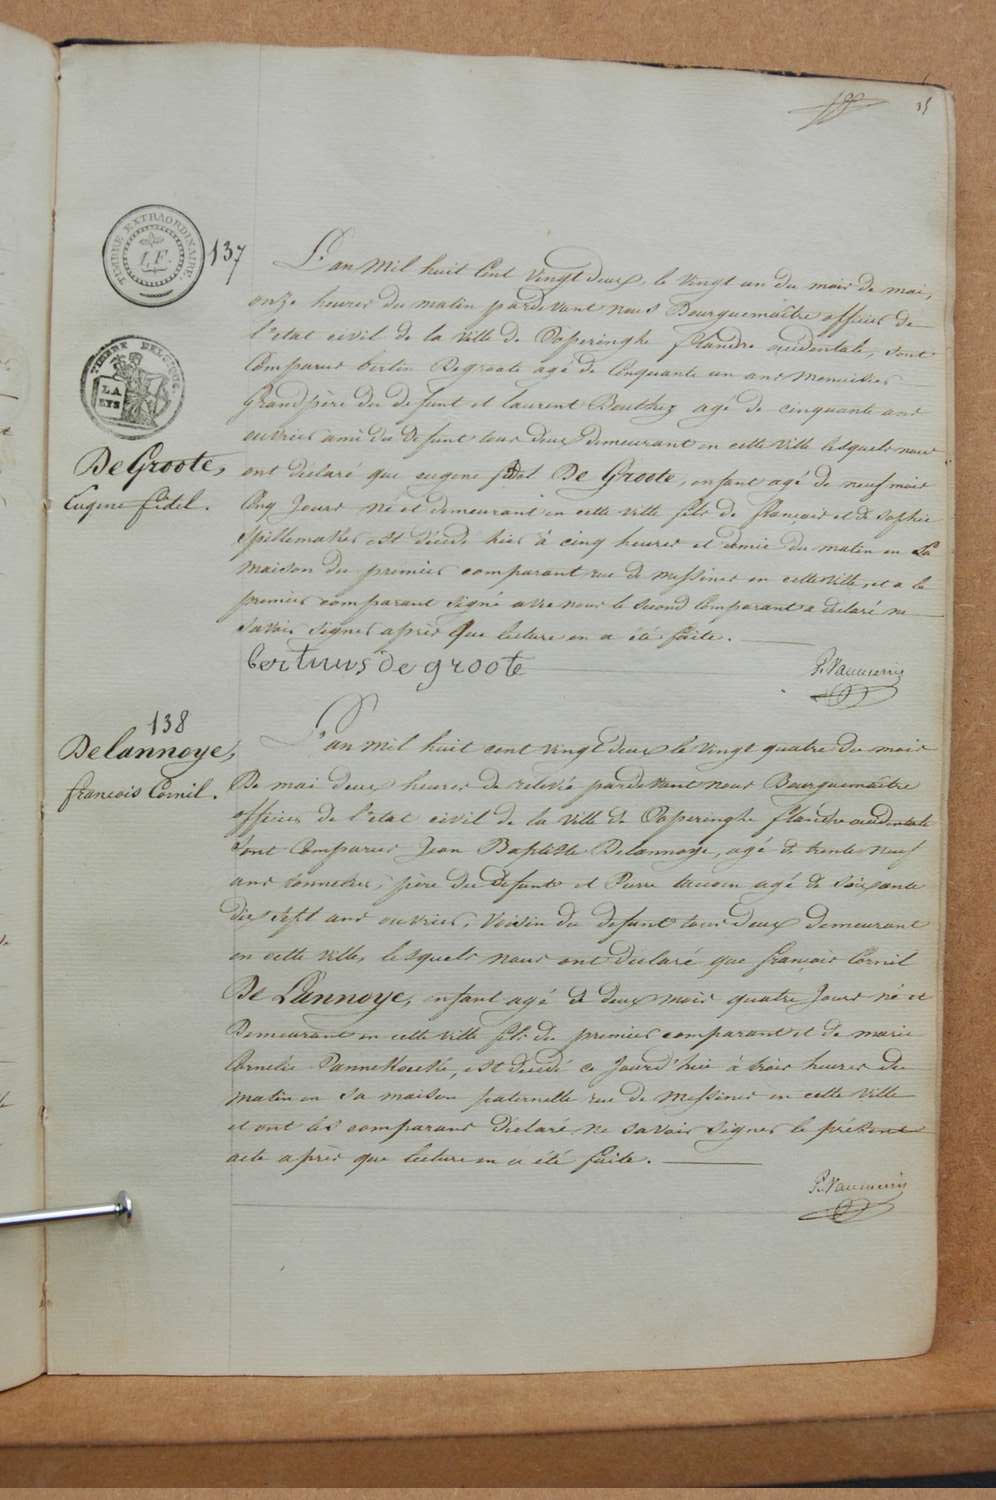 35
TIMBRE EXTRAORDINAIRE.
LF.
TIMBRE BELGIQUE
LA
LYS
137
L'an Mil huit Cent Vingt deux, le Vingt un du mois de mai,
onze heures du matin pardevant nous Bourguemaître officier de
l'etat civil de la Ville de Poperinghe flandre occidentale, sont
Comparus bertin Degroote agé de Cinquante un ans Menuisier
Grand père du defunt et laurent agé de cinquante ans
ouvrier ami du defunt tous deux demeurant en cette Ville lesquels nous
ont déclaré que eugene fidel De Groote, enfant agé de neuf mois
Cinq Jours né et demeurant en cette Ville fils de françois et de Sophie
Spillemaker est décédé hier à cinq heures et demie du matin en La
Maison du premier comparant rue de Messines en cette Ville, et a le
premier comparant Signé avec nous le Second Comparant a déclaré ne
Savoir Signer après Que lecture en a été faite.
De Groote,
Eugene fidel.
Bertinus de groote
138
Delannoye,
francois Cornil.
L'an Mil huit cent vingt deux le vingt quatre du mois
De mai deux heures de relevée pardevant nous Bourguemaître
officier de l'etat civil de la Ville de Poperinghe flandre occidentale
Sont Comparus Jean Baptiste Delannoye, agé de trente neuf
ans tonnelier, père du Defunt et Pierre agé de Soixante
dix Sept ans ouvrier, Voisin du defunt tous deux demeurant
en cette Ville, lesquels nous ont déclaré que françois Cornil
De Lannoye, enfant agé de deux mois quatre Jours né et
Demeurant en cette Ville fils du premier comparant et de marie
Cornelie Pannekoecke, est decédé ce Jourd'hui à trois heures du
matin en Sa maison paternelle rue de Messines en cette Ville
et ont les comparans déclaré ne Savoir Signer le présent
acte après que lecture en a été faite.